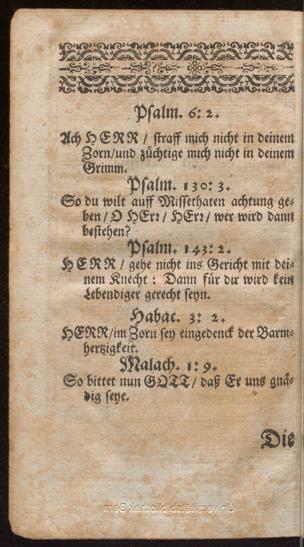 Psalm. 6: 2.
Ach HERR / straff mich nicht in deinem
Zorn/und züchtige mich nicht in deinem
Grimm.
Psalm. 130: 3.
So du wilt auff Missethaten achtung ge-
ben / O HErꝛ / HErꝛ / wer wird dann
bestehen?
Psalm. 143: 2.
HERR / gehe nicht ins Gericht mit dei-
nem Knecht : Dann für dir wird kein
Lebendiger gerecht seyn.
Habac. 3: 2.
HERR/im Zorn sey eingedenck der Barm-
hertzigkeit.
Malach. 1: 9.
So bittet nun GOTT/ daß Er uns gnä-
dig seye.
Die
Universitätsbibliothek Bern